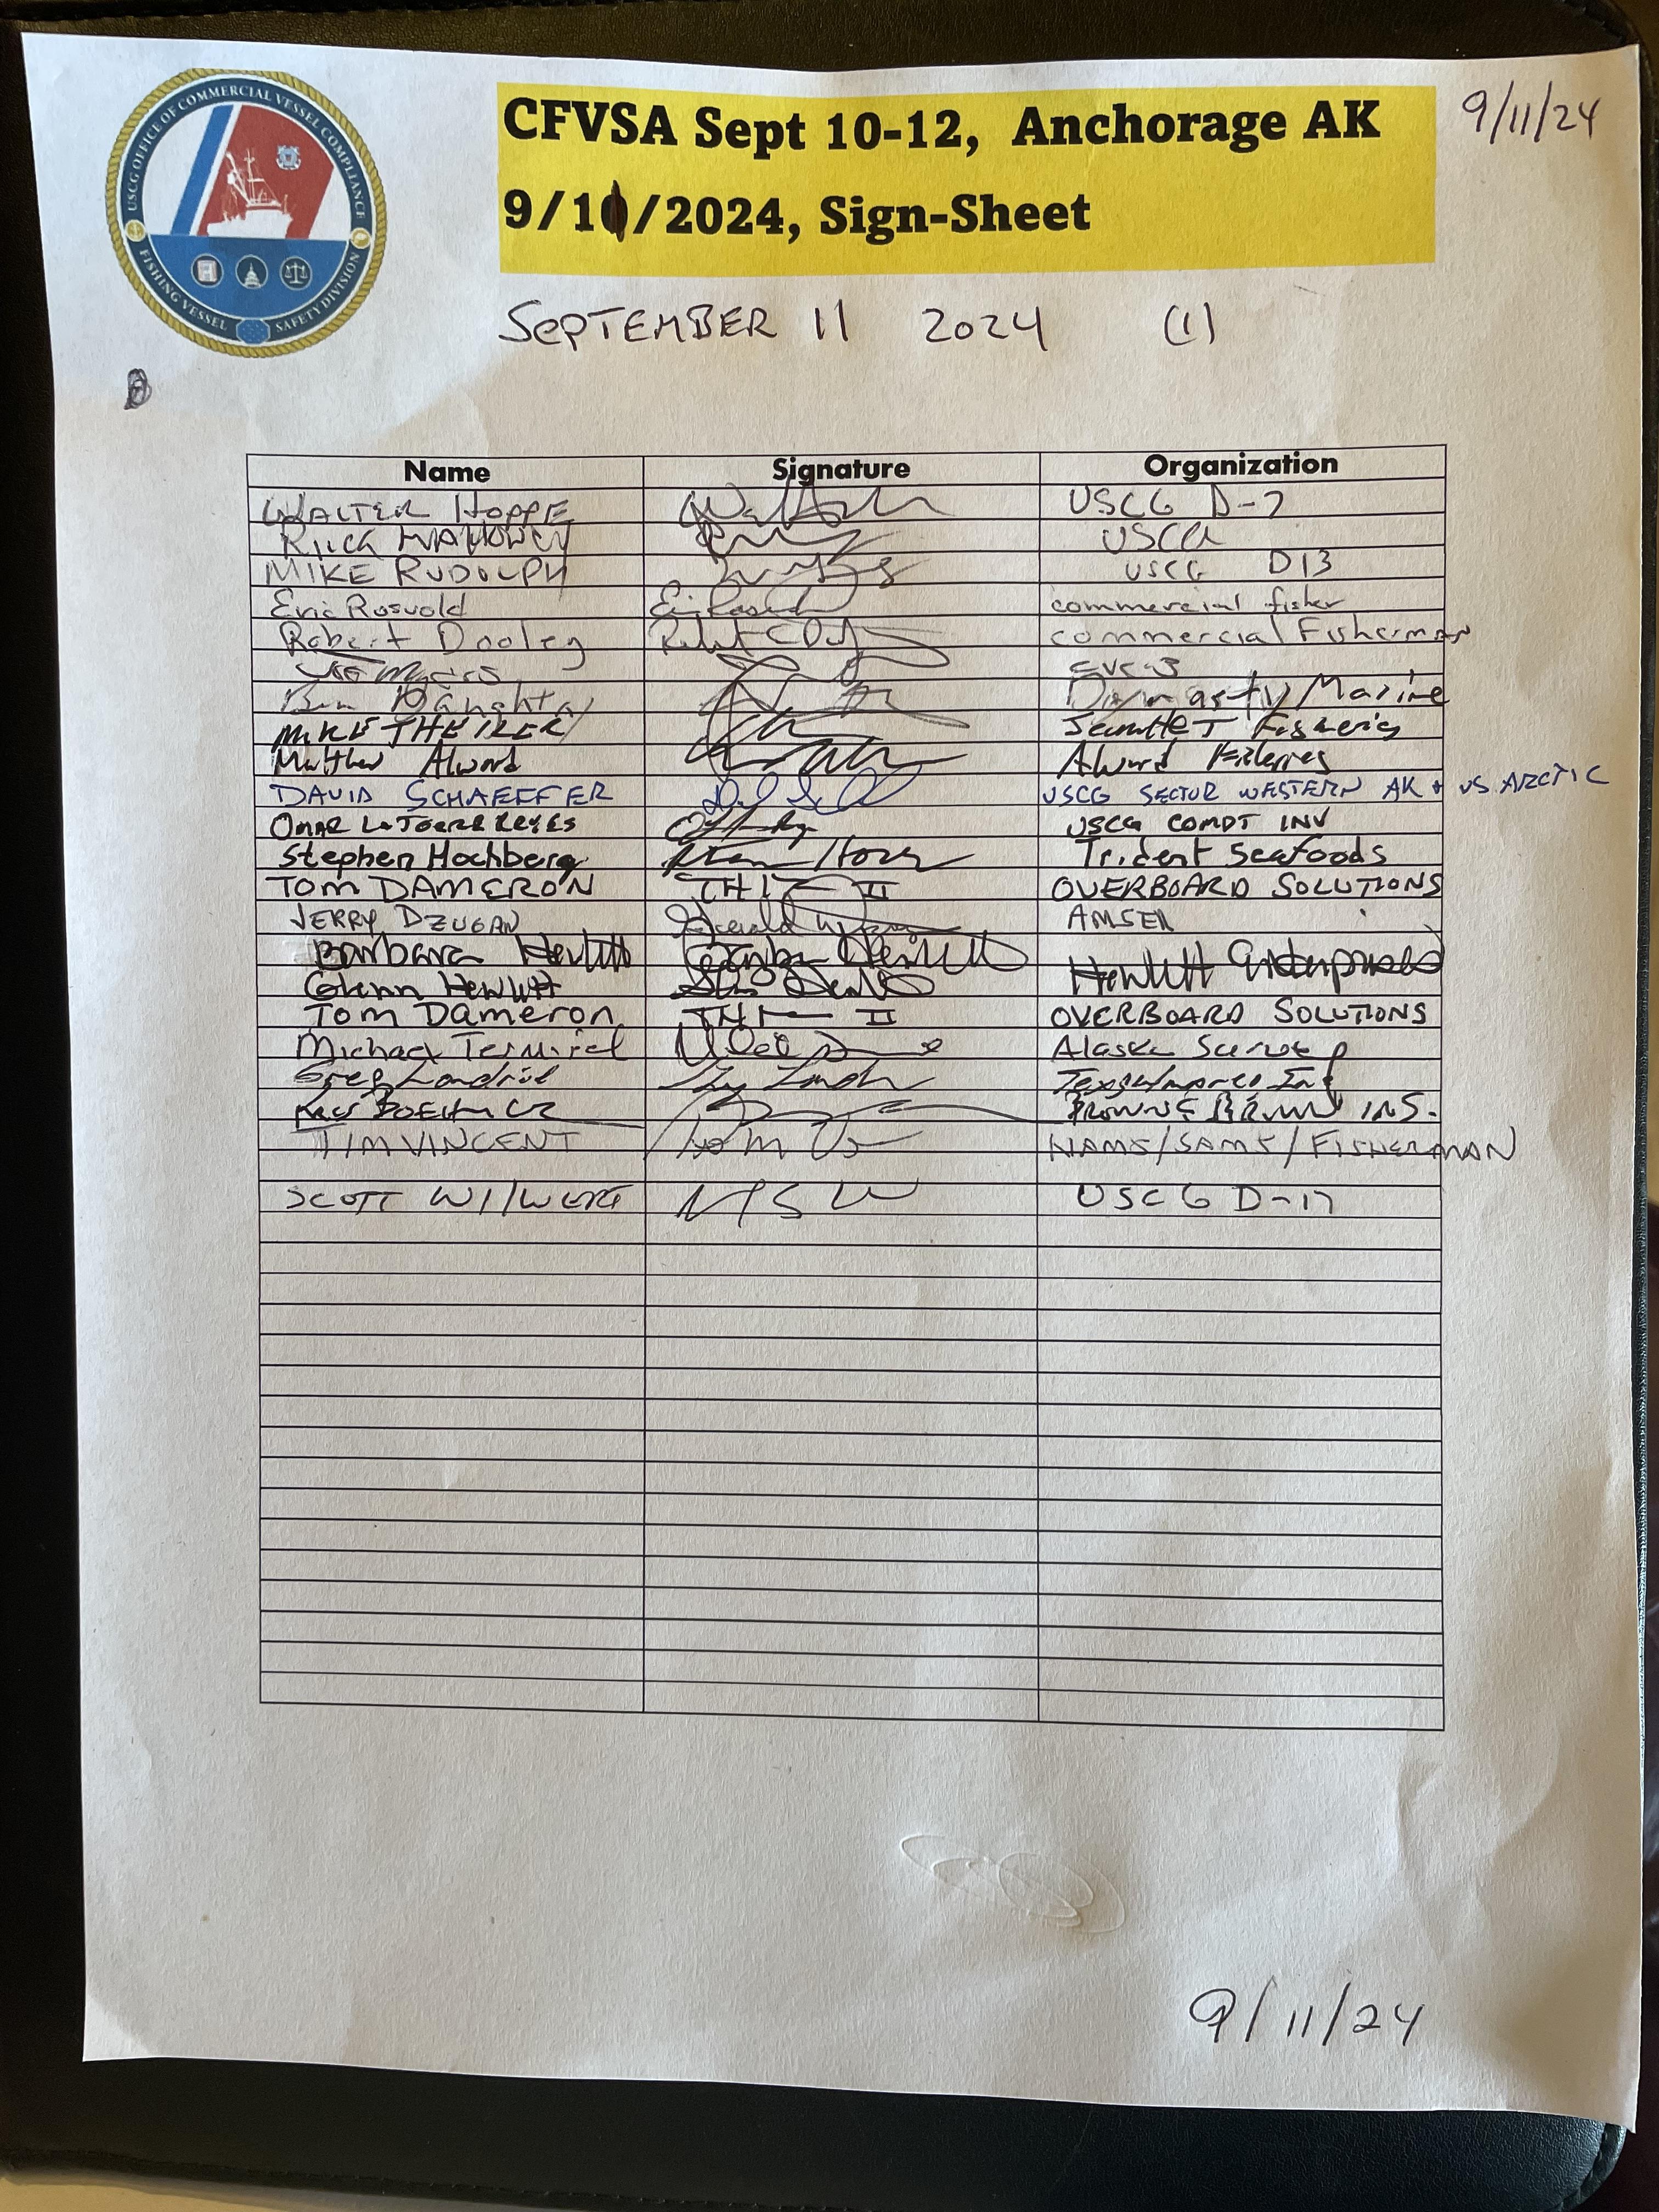 USCG OFFICE OF COMMERCIAL VESSEL COMPLIANCE
FISHING VESSEL SAFETY DIVISION
CFVSA Sept 10-12, Anchorage AK
9/11/24
9/11/2024, Sign-Sheet
SEPTEMBER 11 2024 (1)
Name Signature Organization
WALTER HOPPE USCG D-7
USCG
MIKE RUDOLPH USCG D13
Eric Rosvold commercial fisher
Robert Dooley commercial Fisherman
Myers
Ben Dynasty Marine
MIKE THEILER Fisheries
Matthew Alward Alward Fisheries
DAVID SCHAEFFER USCG SECTOR WESTERN AK + US ARCTIC
OMAR LATORRE REYES USCG COMDT INV
Stephen Hochberg Trident Seafoods
TOM DAMERON OVERBOARD SOLUTIONS
JERRY DZUGAN AMSEA
Barbara Hewlitt
Glenn Hewlitt Hewlitt Enterprises
Tom Dameron OVERBOARD SOLUTIONS
Michael Terminel Alaska
Greg Londrie
BROWN & BROWN INS.
TIM VINCENT NAMS/SAMS/FISHERMAN
SCOTT WILWERT USCG D-17
9/11/24